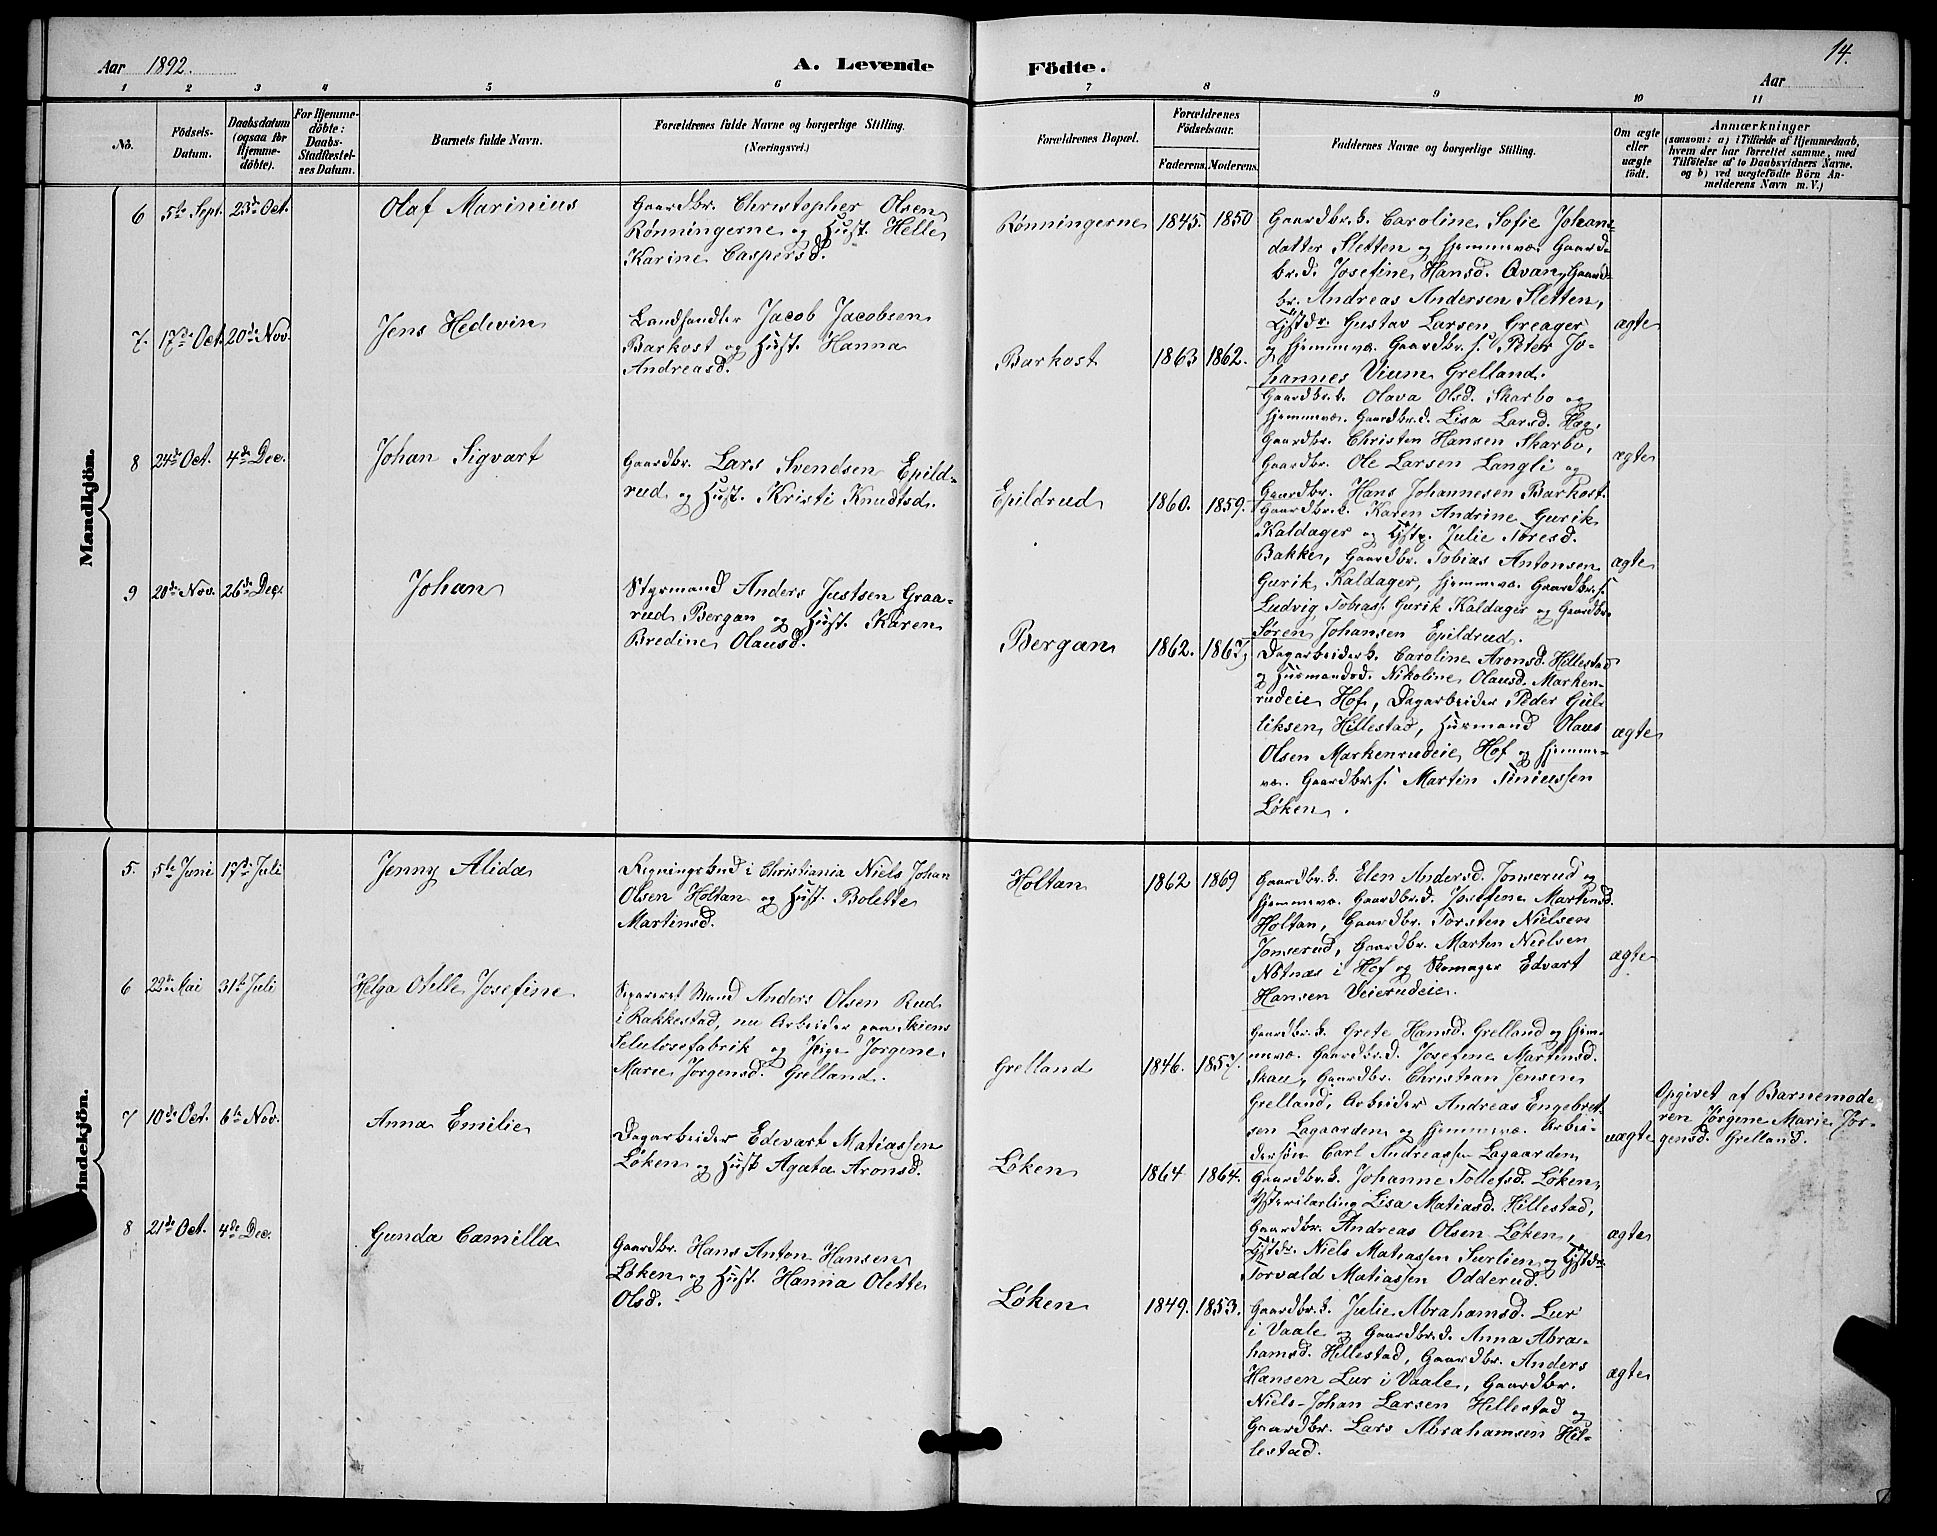 Aar 1892.
A. Levende
Födte.
14.
Aar
1 2 3 4 5 6 7 8 9 10 11
No.
Födsels-
Datum.
Daabsdatum
(ogsaa for
Hjemme-
döbte).
For Hjemme-
döbte:
Daabs-
Stadfæstel-
ses Datum.
Barnets fulde Navn.
Forældrenes fulde Navne og borgerlige Stilling.
(Næringsvei.)
Forældrenes Bopæl.
Forældrenes
Födselsaar.
Faderens. Moderens.
Faddernes Navne og borgerlige Stilling.
Om ægte
eller
uægte
födt.
Anmærkninger
(saasom: a) i Tilfælde af Hjemmedaab,
hvem der har forrettet samme, med
Tilföielse af to Daabsvidners Navne,
og b) ved uægtefödte Börn An-
melderens Navn m. V.)
Mandkjön.
6 5te Sept. 23de Oct.
Olaf Marinius
Gaardbr. Christopher Olsen
Rønningerne og Hust. Helle
Karine Caspersd.
Rønningerne 1845. 1850
Gaardbr.k. Caroline Sofie Johans-
datter Sletten og hjemmevæ. Gaard-
br.d. Josefine Hansd. Qvan, Gaard-
br. Andreas Andersen Sletten,
Tjstdr. Gustav Larsen Greager
og hjemmevæ. Gaardbr.s. Peter Jo-
hannes Vium Grelland.
ægte
7. 17de Oct. 20de Nov.
Jens Hedevin
Landhandler Jacob Jacobsen
Barkost og Hust. Hanna
Andreasd.
Barkost 1863 1862.
Gaardbr.k. Olava Olsd. Skarbo og
hjemmevæ. Gaardbr.d. Lisa Larsd. Hæg,
Gaardbr. Christen Hansen Skarbo,
Gaardbr. Ole Larsen Langli og
Gaardbr. Hans Johannesen Barkost.
ægte
8 24de Oct. 4de Dec.
Johan Sigvart
Gaardbr. Lars Svendsen Epild-
rud og Hust. Kristi Knudtsd.
Epildrud 1860. 1859.
Gaardbr.k. Karen Andrine Gurik
Kaldager og Tjstp. Julie Toresd.
Bakke, Gaardbr. Tobias Antonsen
Gurik Kaldager, hjemmevæ. Gaardbr.s.
Ludvig Tobiass. Gurik Kaldager og Gaardbr.
Søren Johansen Epildrud.
ægte
9 20de Nov. 26de Dec.
Johan
Styrmand Anders Justsen Graa-
rud Bergan og Hust. Karen
Bredine Olausd.
Bergan 1862. 1867,
Dagarbeiderk. Caroline Aronsd. Hillestad
og Husmandsd. Nikoline Olausd. Marken-
rudeie Hof, Dagarbeider Peder Gul-
liksen Hillestad, Husmand Olaus
Olsen Markenrudeie Hof og hjemme-
væ. Gaardbr.s. Martin Tiniussen
Løken.
ægte
indekjön.
5. 5te Juni 17de Juli
Jenny Alida
Regningsbud i Christiania Niels Johan
Olsen Holtan og Hust. Bolette
Martinsd.
Holtan 1862 1869
Gaardbr.k. Elen Andersd. Jonserud og
hjemmevæ. Gaardbr.d. Josefine Martinsd.
Holtan, Gaardbr. Torsten Nielsen
Jonserud, Gaardbr. Marten Nielsen
Nøtnæs i Hof og Skomager Edvart
Hansen Veierudeie.
ægte
6 22de Mai 31te Juli
Helga Otelle Josefine
Separeret Mand Anders Olsen Rud
i Rakkestad, nu Arbeider paa Skiens
Selulosefabrik og Pige Jørgene
Marie Jørgensd. Grelland.
Grelland 1846. 1857.
Gaardbr.k. Grete Hansd. Grelland og hjem-
mevæ. Gaardbr.d. Josefine Martinsd.
Skau, Gaardbr. Christian Jensen
Grelland, Arbeider Andreas Engebret-
sen Lagaarden og hjemmevæ. Arbei-
dersøn Carl Andreassen Lagaarden,
uægte
Opgivet af Barnemode-
ren Jørgene Marie Jør-
gensd. Grelland.
7 10de Oct. 6te Nov.
Anna Emilie
Dagarbeider Edevart Matiassen
Løken og Hust. Agata Aronsd.
Løken 1864 1864.
Gaardbr.k. Johanne Tollefsd. Løken,
Lisa Matiasd. Hillestad,
Gaardbr. Andreas Olsen Løken,
Tjstdr. Niels Matiassen Surlien og Tjstdr.
Torvald Matiassen Odderud.
ægte
8 21de Oct. 4de Dec.
Gunda Camilla
Gaardbr. Hans Anton Hansen
Løken og Hust. Hanna Olette
Olsd.
Løken 1849. 1853.
Gaardbr.k. Julie Abrahamsd. Lur
i Vaale og Gaardbr.d. Anna Abra-
hamsd. Hillestad, Gaardbr. Anders
Hansen Lur i Vaale, Gaardbr.
Niels-Johan Larsen Hillestad og
Gaardbr. Lars Abrahamsen Hil-
lestad.
ægte